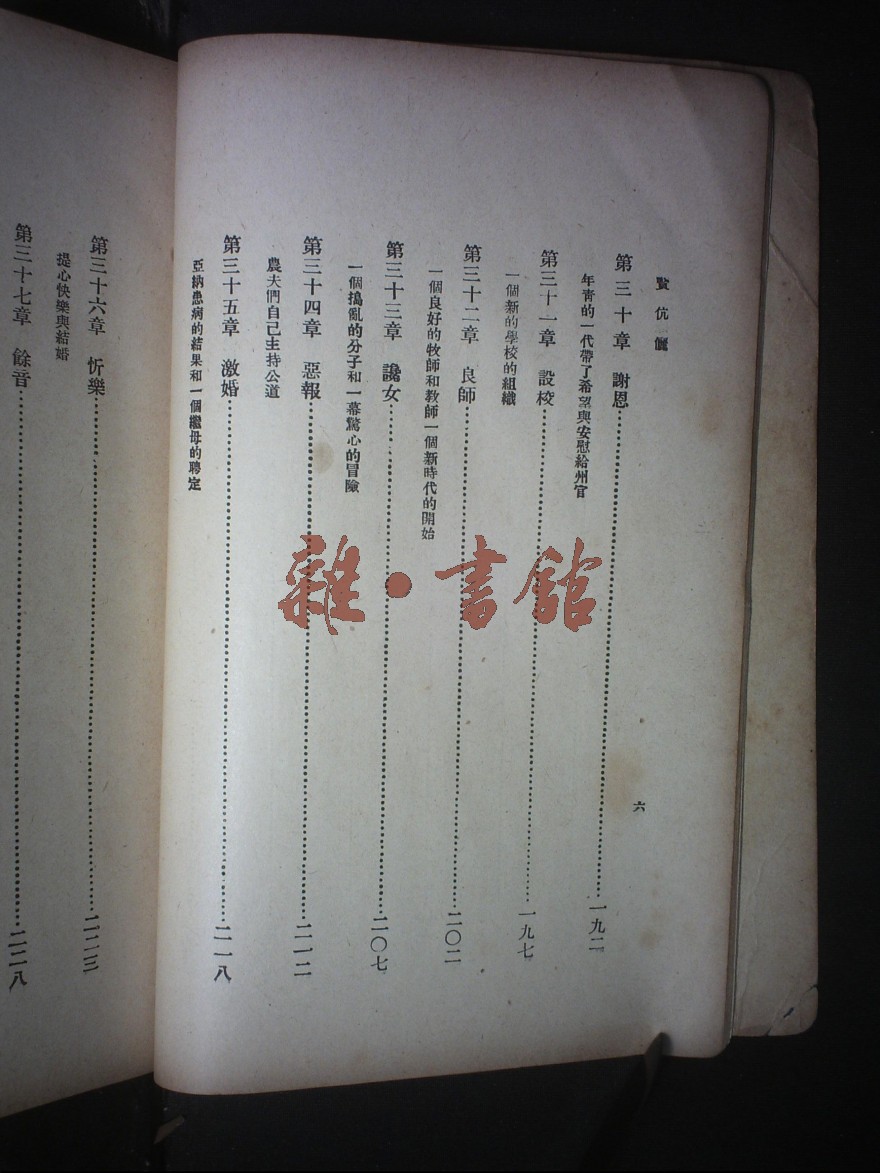 賢伉儷
六
第三十章　謝恩…………一九二
年青的一代帶了希望與安慰給州官
第三十一章　設校…………一九七
一個新的學校的組織
第三十二章　良師…………二〇二
一個良好的牧師和教師一個新時代的開始
第三十三章　讒女…………二〇七
一個搗亂的分子和一幕驚心的冒險
第三十四章　惡報…………二一二
農夫們自己主持公道
第三十五章　激婚…………二一八
亞納患病的結果和一個繼母的聘定
第三十六章　忻樂…………二二三
提心快樂與結婚
第三十七章　餘音…………二二八
雜·書館